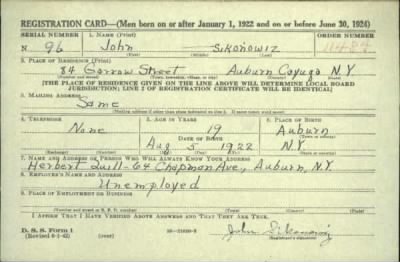 REGISTRATION CARD—(Men born on or after January 1, 1922 and on or before June 30, 1924)
SERIAL NUMBER 1. NAME (Print) ORDER NUMBER
N 96 John Sikonowiz 11484
(First) (Middle) (Last)
2. PLACE OF RESIDENCE (Print)
84 Garrow Street Auburn Cayuga N.Y.
(Number and street) (Town, township, village, or city) (County) (State)
[THE PLACE OF RESIDENCE GIVEN ON THE LINE ABOVE WILL DETERMINE LOCAL BOARD
JURISDICTION; LINE 2 OF REGISTRATION CERTIFICATE WILL BE IDENTICAL]
3. MAILING ADDRESS
Same
[Mailing address if other than place indicated on line 2. If same insert word same]
4. TELEPHONE 5. AGE IN YEARS 6. PLACE OF BIRTH
None 19 Auburn
DATE OF BIRTH
Aug 5 1922 N.Y.
7. NAME AND ADDRESS OF PERSON WHO WILL ALWAYS KNOW YOUR ADDRESS
Herbert -64 Chapman Ave., Auburn, N.Y.
8. EMPLOYER'S NAME AND ADDRESS
Unemployed
9. PLACE OF EMPLOYMENT OR BUSINESS
(Number and street or R. F. D. number) (Town) (County) (State)
I AFFIRM THAT I HAVE VERIFIED ABOVE ANSWERS AND THAT THEY ARE TRUE.
D. S. S. Form 1
(Revised 6-1-42)
(Registrant's signature)